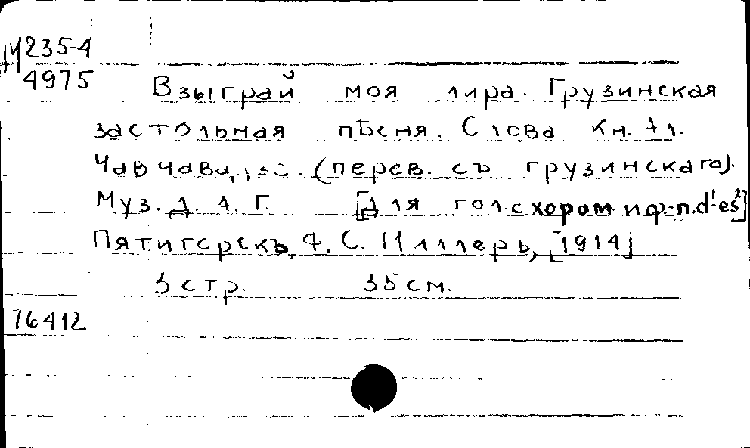 М235-4
4975
Взыграй моя лира. Грузинская
застольная пѣсня. Слова Кн. А.
Чавчавадзе. (перев. съ грузинскаго).
Муз. Д. А. Г. [Для гол. с хором и ф-п. d¹-es²]
Пятигорскъ, А. С. Миллеръ, [1914]
3 стр. 35 см.
76412